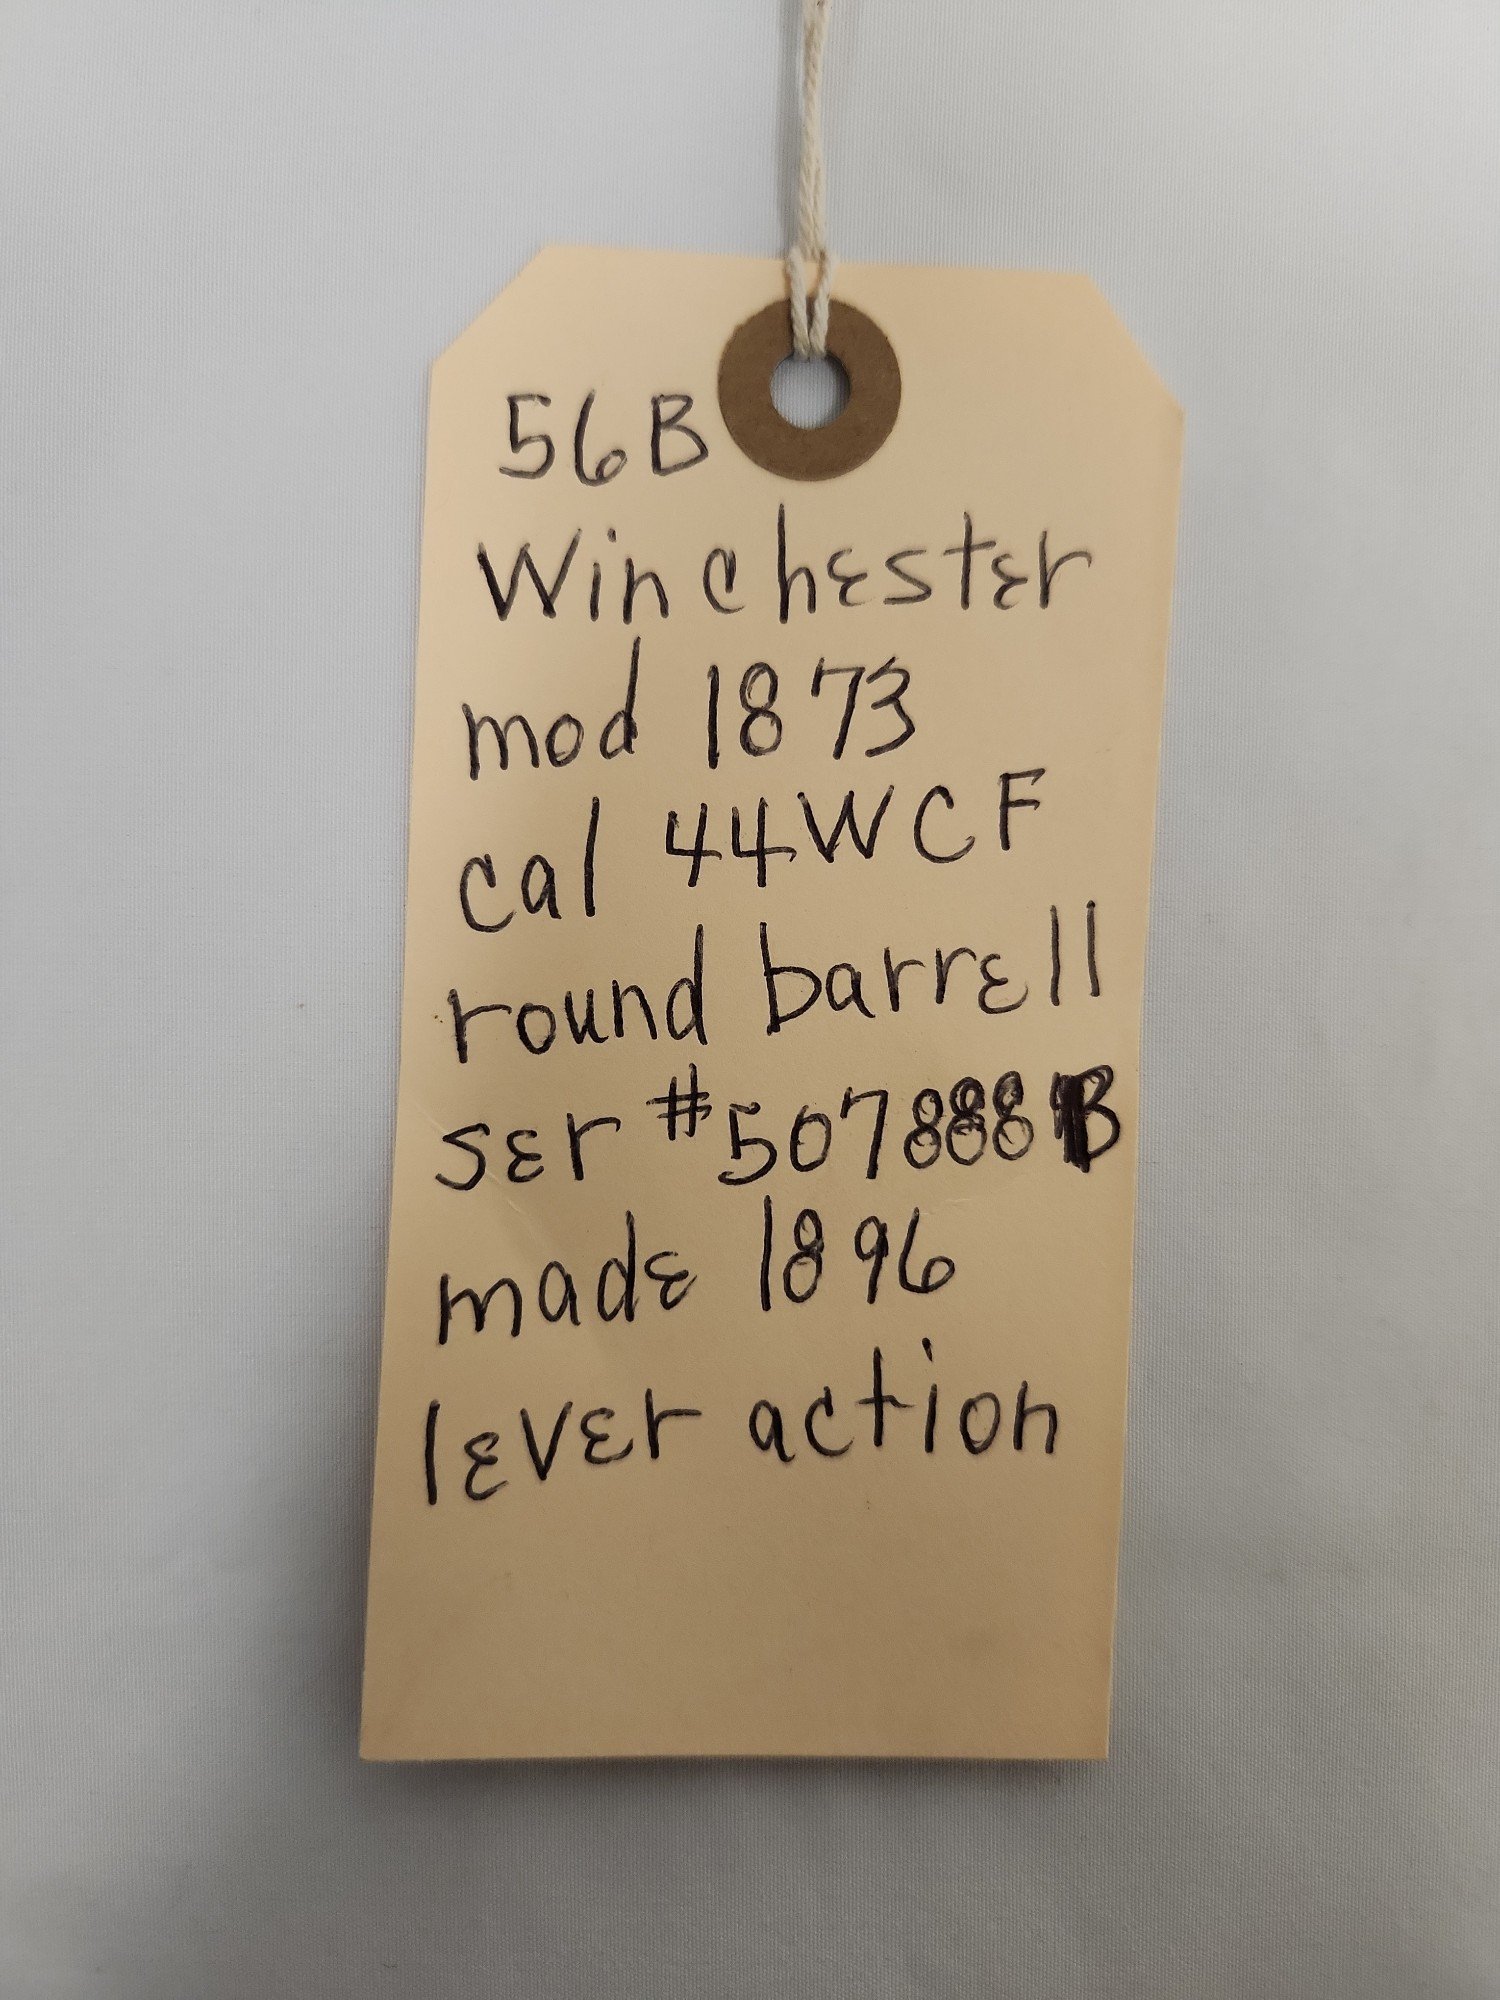 56B
Winchester
mod 1873
cal 44WCF
round barrell
ser #507888B
made 1896
lever action